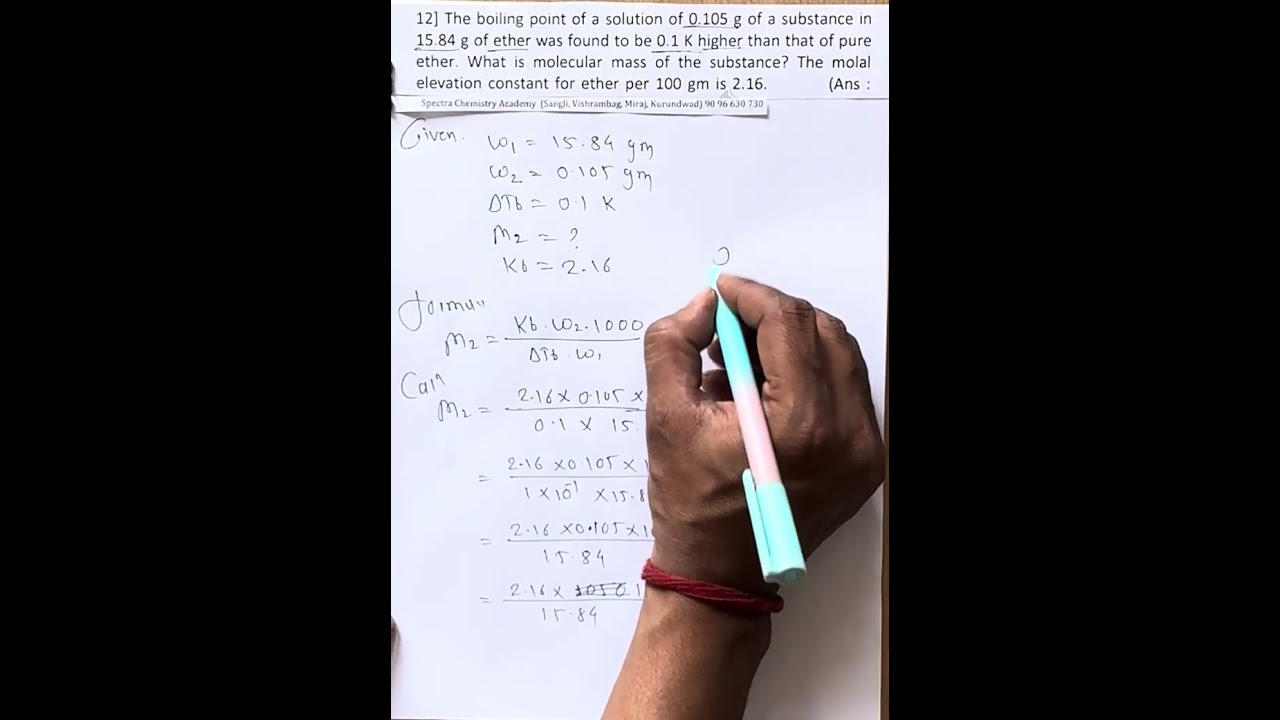 12] The boiling point of a solution of 0.105 g of a substance in
15.84 g of ether was found to be 0.1 K higher than that of pure
ether. What is molecular mass of the substance? The molal
elevation constant for ether per 100 gm is 2.16. (Ans :
Spectra Chemistry Academy (Sangli, Vishrambag, Miraj, Kurundwad) 90 96 630 730
Given.
W₁ = 15.84 gm
W₂ = 0.105 gm
ΔTb = 0.1 K
M₂ = ?
Kb = 2.16
M₂ = Kb.W₂.1000
ΔTb.W₁
M₂ = 2.16 x 0.105 x
0.1 x 15.
= 2.16 x 0.105 x 1
1 x 10⁻¹ x 15.8
= 2.16 x 0.105 x 1
15.84
= 2.16 x 1050 1
15.84